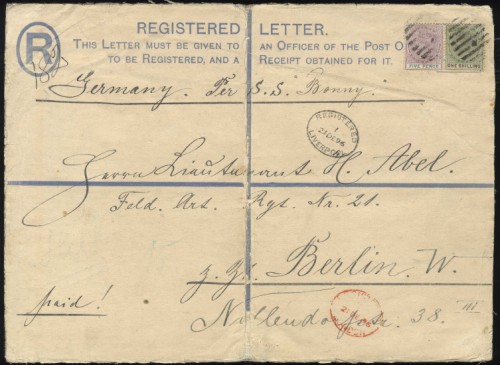 R REGISTERED LETTER.
THIS LETTER MUST BE GIVEN TO AN OFFICER OF THE POST O
TO BE REGISTERED, AND A RECEIPT OBTAINED FOR IT.
FIVE PENCE ONE SHILLING
Germany. Per S.S. Bonny.
REGISTERED
LIVERPOOL
Herrn Lieutenant H. Abel.
Feld. Art. Rgt. Nr. 21.
z. Zt. Berlin. W.
paid!
Nollendorfstr. 38. III